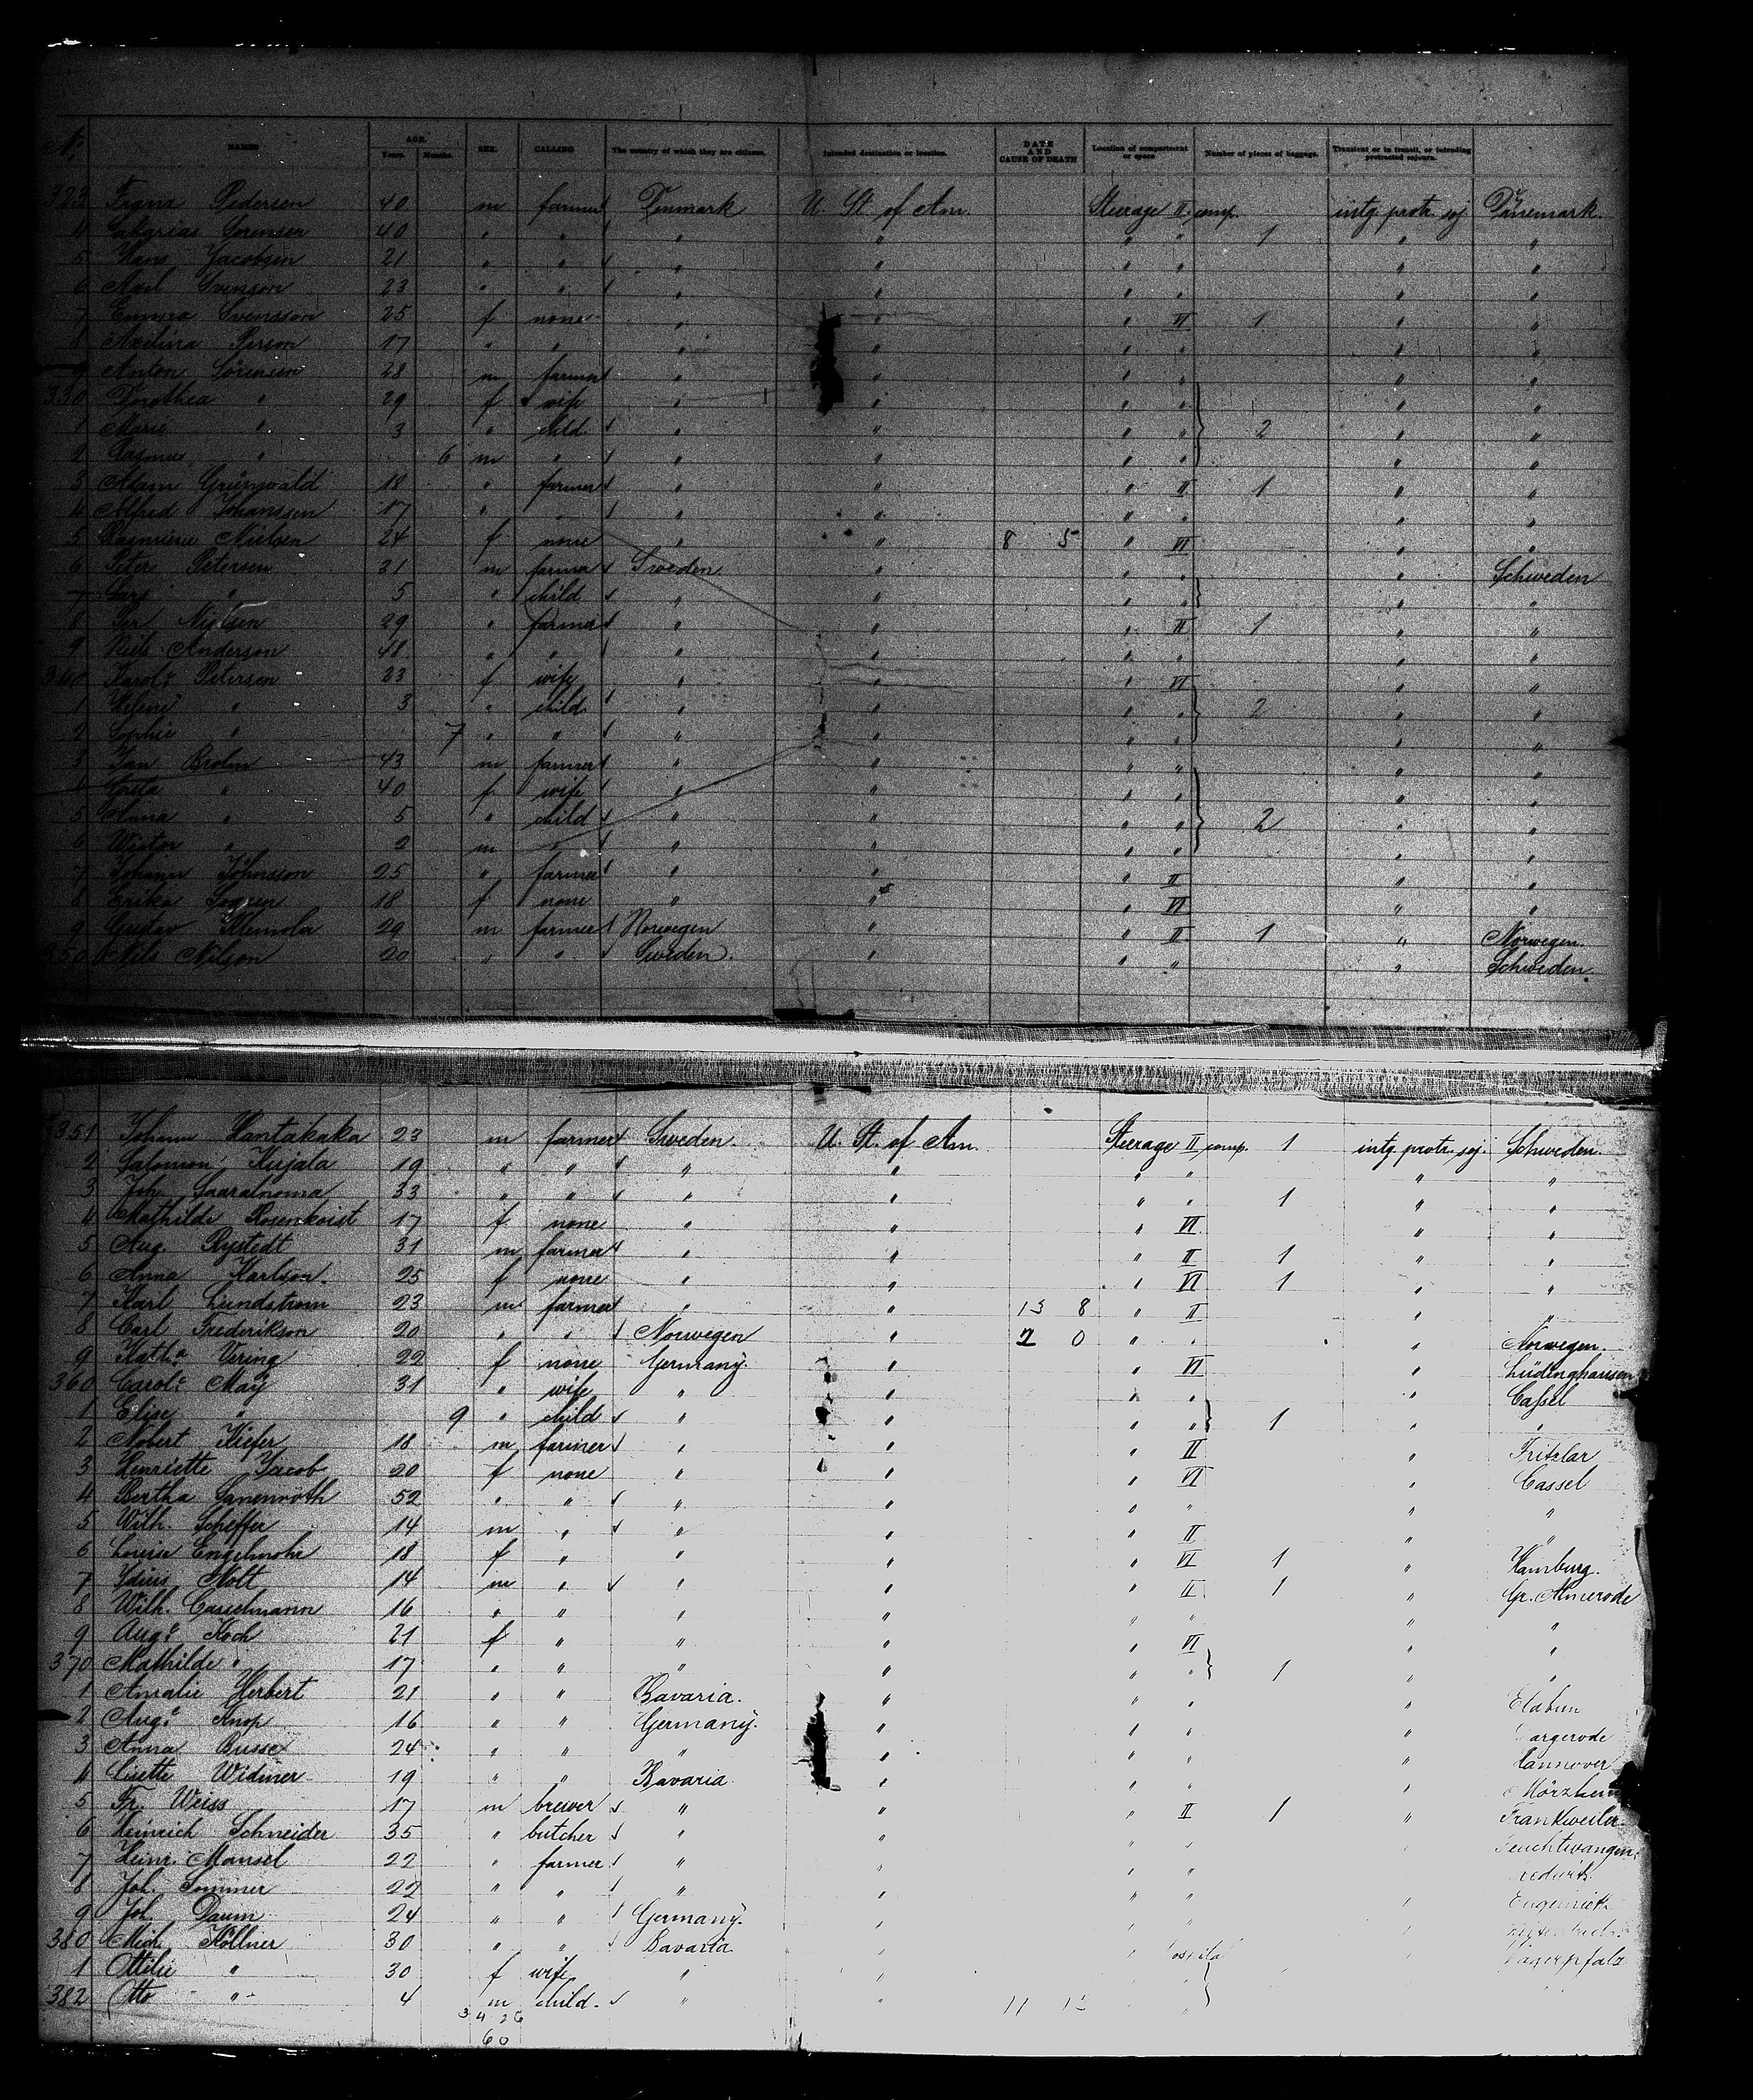 No. NAMES AGE. Years. Months. SEX. CALLING The country of which they are citizens. Intended destination or location. DATE AND CAUSE OF DEATH Location of compartment or space Number of pieces of baggage. Transient or in transit, or intending protracted sojourn.
323 Franz Pedersen 40 m farmer Denmark U. St. of Am. Steerage II comp. intg. protr. soj. Dänemark.
4 Sorensen 40 " " " " " " 1 " "
5 Hans Jacobsen 21 " " " " " " " "
6 Axel Svenson 23 " " " " " " " "
7 Emma Svensson 25 f none " " " VI 1 " "
8 Axelina Person 17 " " " " " " " "
9 Anton Sörensen 28 m farmer " " " " " "
330 Dorothea " 29 f wife " " " " " "
1 Marie " 3 " child " " " " 2 " "
2 Rasmus " 6 m " " " " " " "
3 Adam Grünwald 18 " farmer " " " II 1 " "
4 Alfred Johanssen 17 " " " " " " " "
5 Nielsen 24 f none " " 8 5 " VI " "
6 Peter Petersen 31 m farmer Sweden " " " " Schweden
7 Lars " 5 " child " " " " " "
8 Per Nielsen 29 " farmer " " " II 1 " "
9 Niels Anderson 48 " " " " " " " "
340 Karole Petersen 23 f wife " " " VI " "
1 Helene " 3 " child " " " " 2 " "
2 Sophie " 7 " " " " " " " "
3 Jan Brolin 43 m farmer " " " " " "
4 Greta " 40 f wife " " " " " "
5 Anna " 5 " child " " " " 2 " "
6 Wictor " 2 m " " " " " " "
7 Johann Johnsson 25 " farmer " " " II " "
8 Erika 18 f none " " " VI " "
9 Gustav Klemola 29 m farmer Norwegen " " II 1 " Norwegen.
350 Nils Nilson 20 " " Sweden. " " " " Schweden.
351 Johann Hantakaka 23 m farmer Sweden. U. St. of Am. Steerage II comp. 1 intg. protr. soj. Schweden.
2 Salomon Kujala 19 " " " " " " " "
3 Joh. 33 " " " " " " 1 " "
4 Mathilde Rosenkvist 17 f none " " " VI " "
5 Aug. Rystedt 31 m farmer " " " II 1 " "
6 Anna Karlson. 25 f none " " " VI 1 " "
7 Karl Lundstrom 23 m farmer " " 13 8 " II " "
8 Carl Frederikson 20 " " Norwegen " 2 0 " " " Norwegen.
9 Katha. Vering 22 f none Germany. " " VI " Lüdinghausen
360 Carole. May 31 " wife " " " " " Cassel
1 Elise " 9 " child " " " " 1 " "
2 Nobert Kiefer 18 m farmer " " " II " Fritzlar
3 Henriette Jacob 20 f none " " " VI " Cassel
4 Bertha 52 " " " " " " " "
5 Wilh. Scheffer 14 m " " " " II " "
6 Louise Engelmohr 18 f " " " " VI 1 " Hamburg.
7 Nolt 14 m " " " " II 1 " Gr. Almerode
8 Wilh. Casselmann 16 " " " " " " " "
9 Auge. Koch 21 f " " " " VI " "
370 Mathilde " 17 " " " " " " 1 " "
1 Amalie Herbert 21 " " Bavaria. " " " "
2 Auge. Knop 16 " " Germany. " " " "
3 Anna Busse 24 " " " " " " " Hannover
4 Lisette Widmer 19 " " Bavaria. " " " " Mörzheim
5 Fr. Weiss 17 m brewer " " " II 1 " Frankweiler
6 Heinrich Schneider 35 " butcher " " " " " Feuchtwangen
7 Heinr. Mansel 22 " farmer " " " "
8 Joh. Sommer 22 " " " " " "
9 Joh. Daum 24 " " Germany. " " "
380 Mich. Köllner 30 " " Bavaria. " "
1 Ottilie " 30 f wife " "
382 Otto " 4 m child. " " 11 "
34 26
60